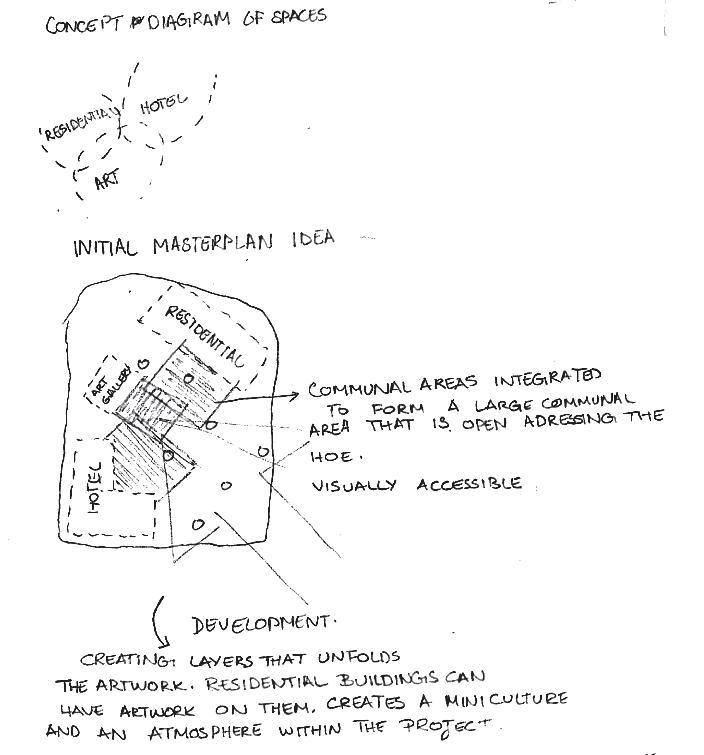 CONCEPT DIAGRAM OF SPACES
RESIDENTIAL
HOTEL
ART
INITIAL MASTERPLAN IDEA
RESIDENTIAL
ART
GALLERY
HOTEL
COMMUNAL AREAS INTEGRATED
TO FORM A LARGE COMMUNAL
AREA THAT IS OPEN ADRESSING THE
HOE.
VISUALLY ACCESSIBLE
DEVELOPMENT.
CREATING LAYERS THAT UNFOLDS
THE ARTWORK. RESIDENTIAL BUILDINGS CAN
HAVE ARTWORK ON THEM. CREATES A MINICULTURE
AND AN ATMOSPHERE WITHIN THE PROJECT.